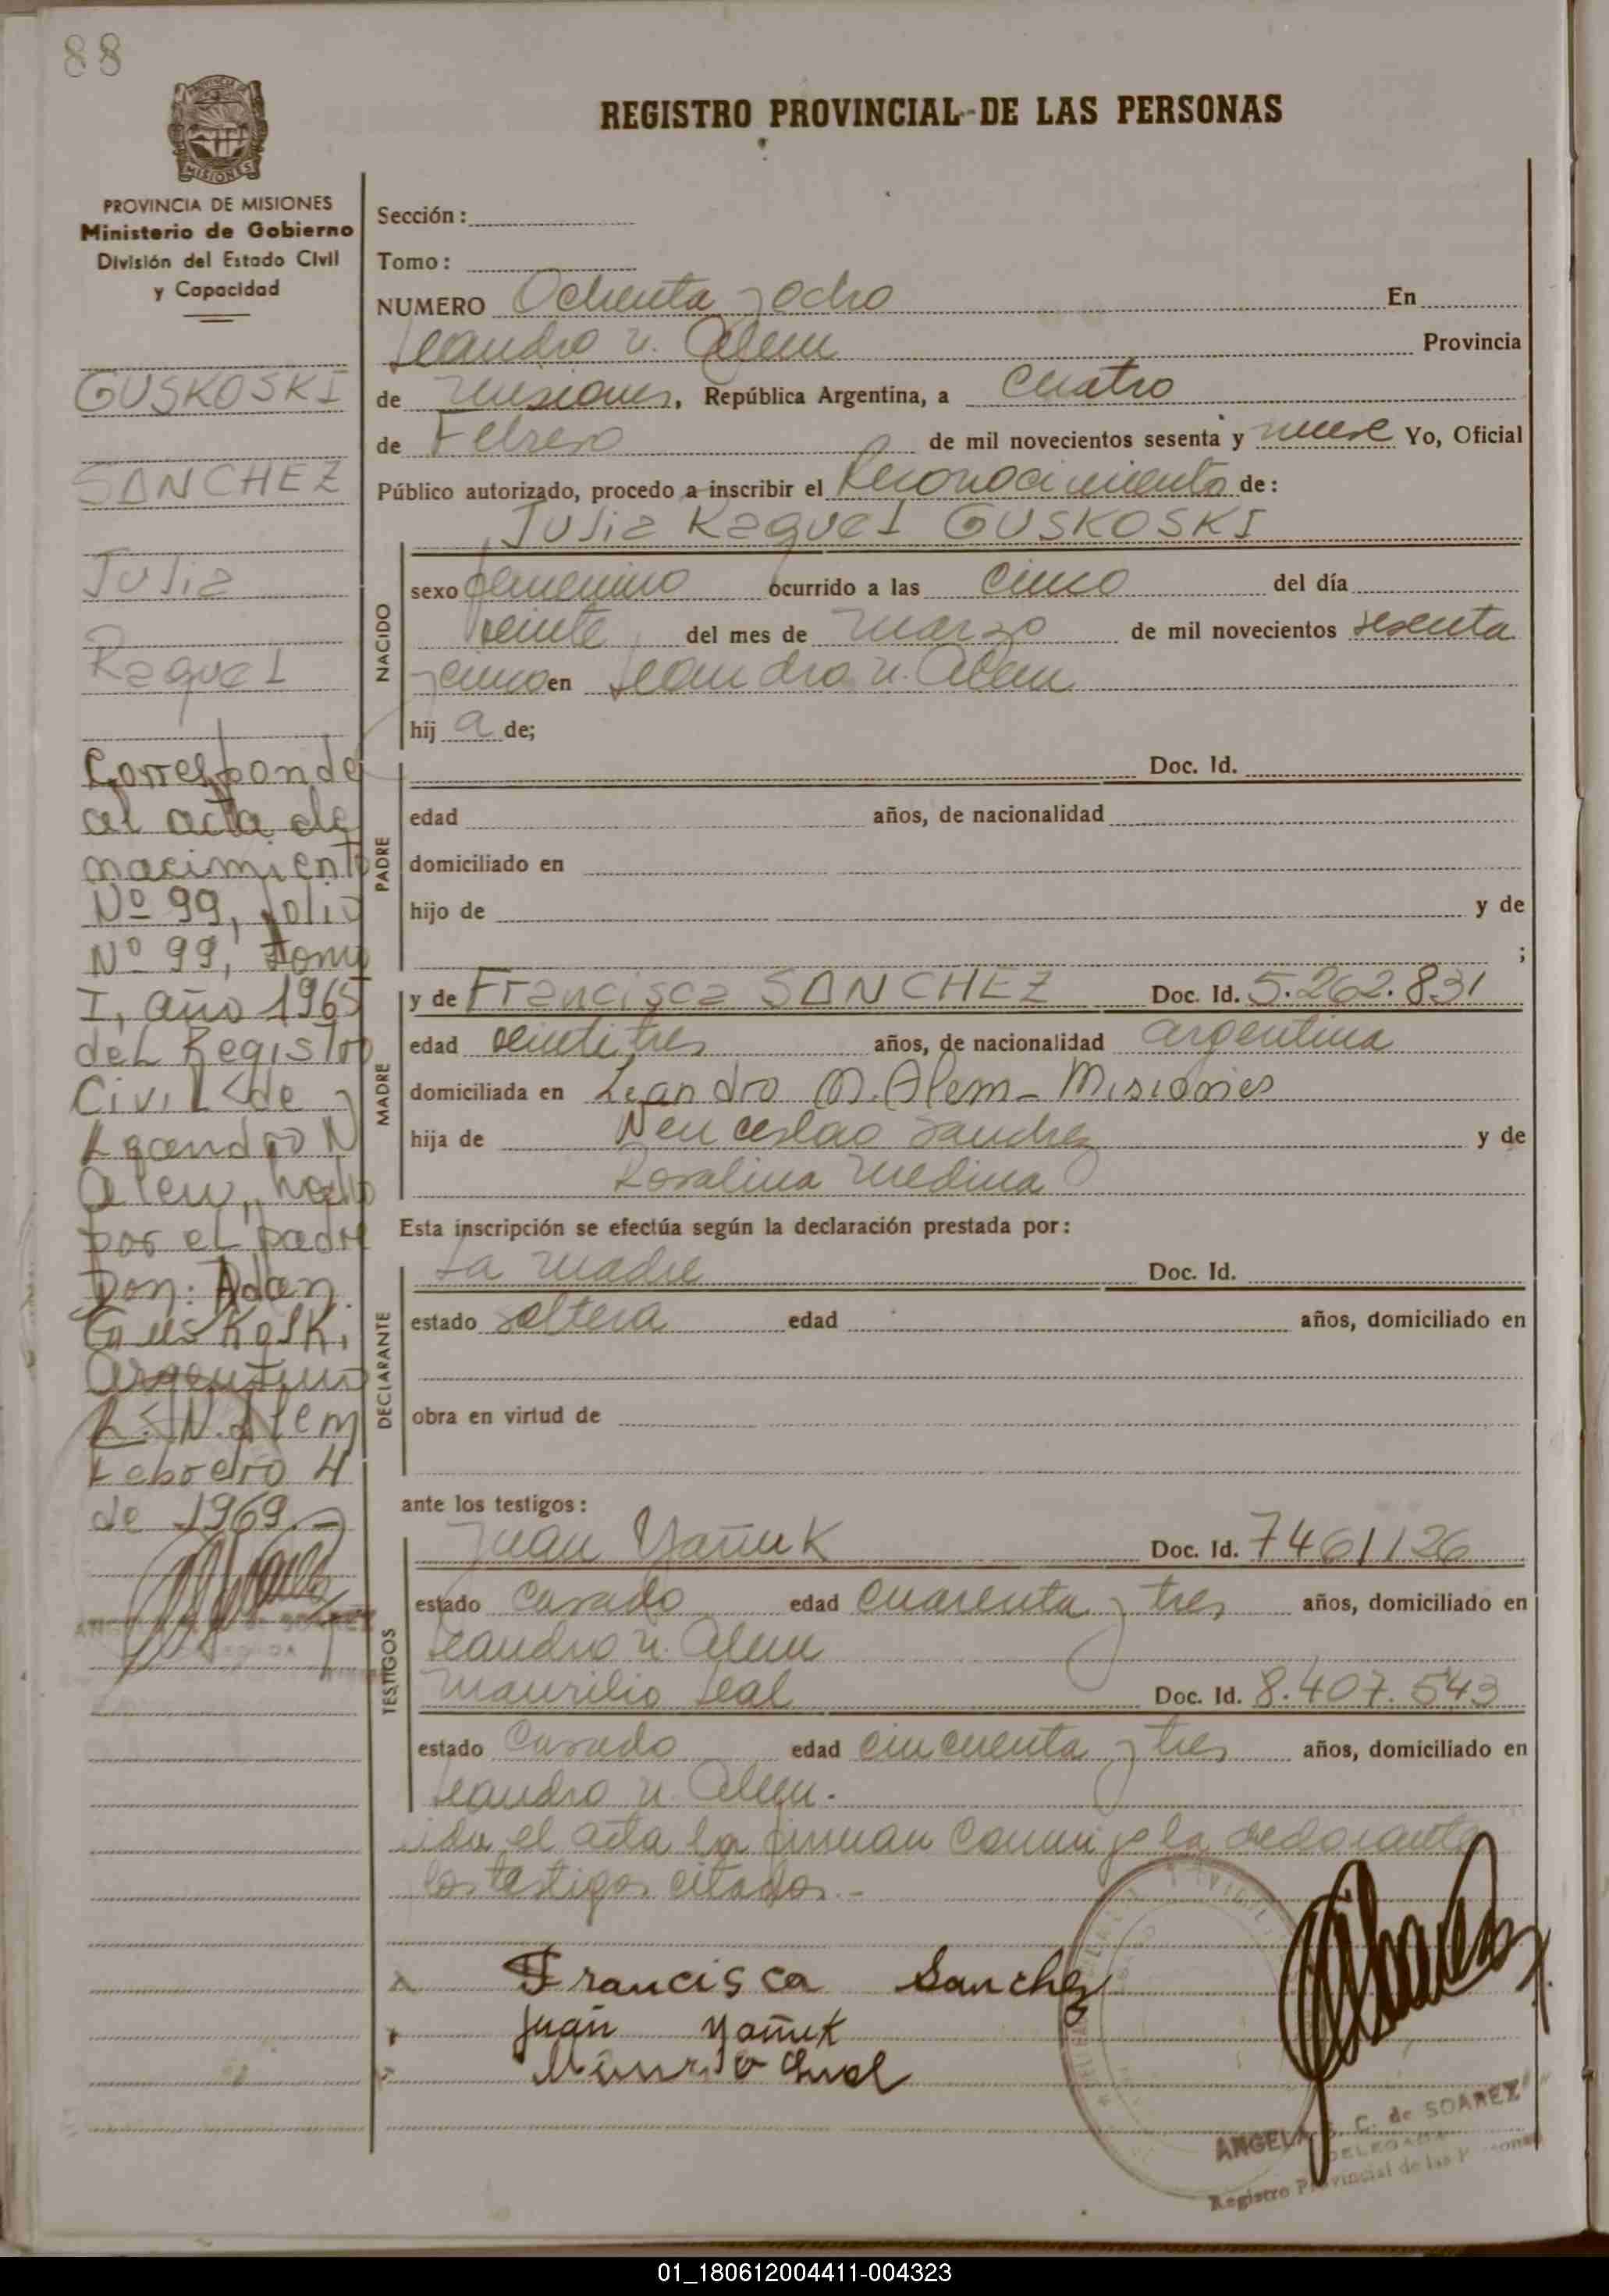 88
REGISTRO PROVINCIAL DE LAS PERSONAS
MISIONES
PROVINCIA DE MISIONES
Ministerio de Gobierno
División del Estado Civil
y Capacidad
GUSKOSKI
SANCHEZ
Julia
Raquel
Corresponde
al acta de
nacimiento
Nº 99, folio
Nº 99, tomo
I, año 1965
del Registro
Civil de
Leandro N
Alem, hecho
por el padre
Don: Adan
Guskoski,
argentino
L. N. Alem
Febrero 4
de 1969.-
Sección:
Tomo:
NUMERO Ochenta y ocho En
Leandro N. Alem Provincia
de Misiones, República Argentina, a Cuatro
de Febrero de mil novecientos sesenta y nueve Yo, Oficial
Público autorizado, procedo a inscribir el Reconocimiento de:
Julia Raquel GUSKOSKI
NACIDO
sexo femenino ocurrido a las cinco del día
veinte del mes de marzo de mil novecientos sesenta
y cinco en Leandro N. Alem
hij a de;
PADRE
Doc. Id.
edad años, de nacionalidad
domiciliado en
hijo de y de
;
MADRE
y de Francisca SANCHEZ Doc. Id. 5.262.831
edad veintitres años, de nacionalidad argentina
domiciliada en Leandro N. Alem - Misiones
hija de Wenceslao Sanchez y de
Rosalina Medina
Esta inscripción se efectúa según la declaración prestada por:
DECLARANTE
La madre Doc. Id.
estado soltera edad años, domiciliado en
obra en virtud de
ante los testigos:
TESTIGOS
Juan Yañuk Doc. Id. 7461126
estado casado edad cuarenta y tres años, domiciliado en
Leandro N. Alem
Maurilio Leal Doc. Id. 8.407.543
estado casado edad cincuenta y tres años, domiciliado en
Leandro N. Alem.
el acta la firman conmigo la declarante
los testigos citados.-
Francisca Sanchez
Juan Yañuk
ANGELA S. C. de SOAREZ
DELEGADA
Registro Provincial de las Personas
01_180612004411-004323